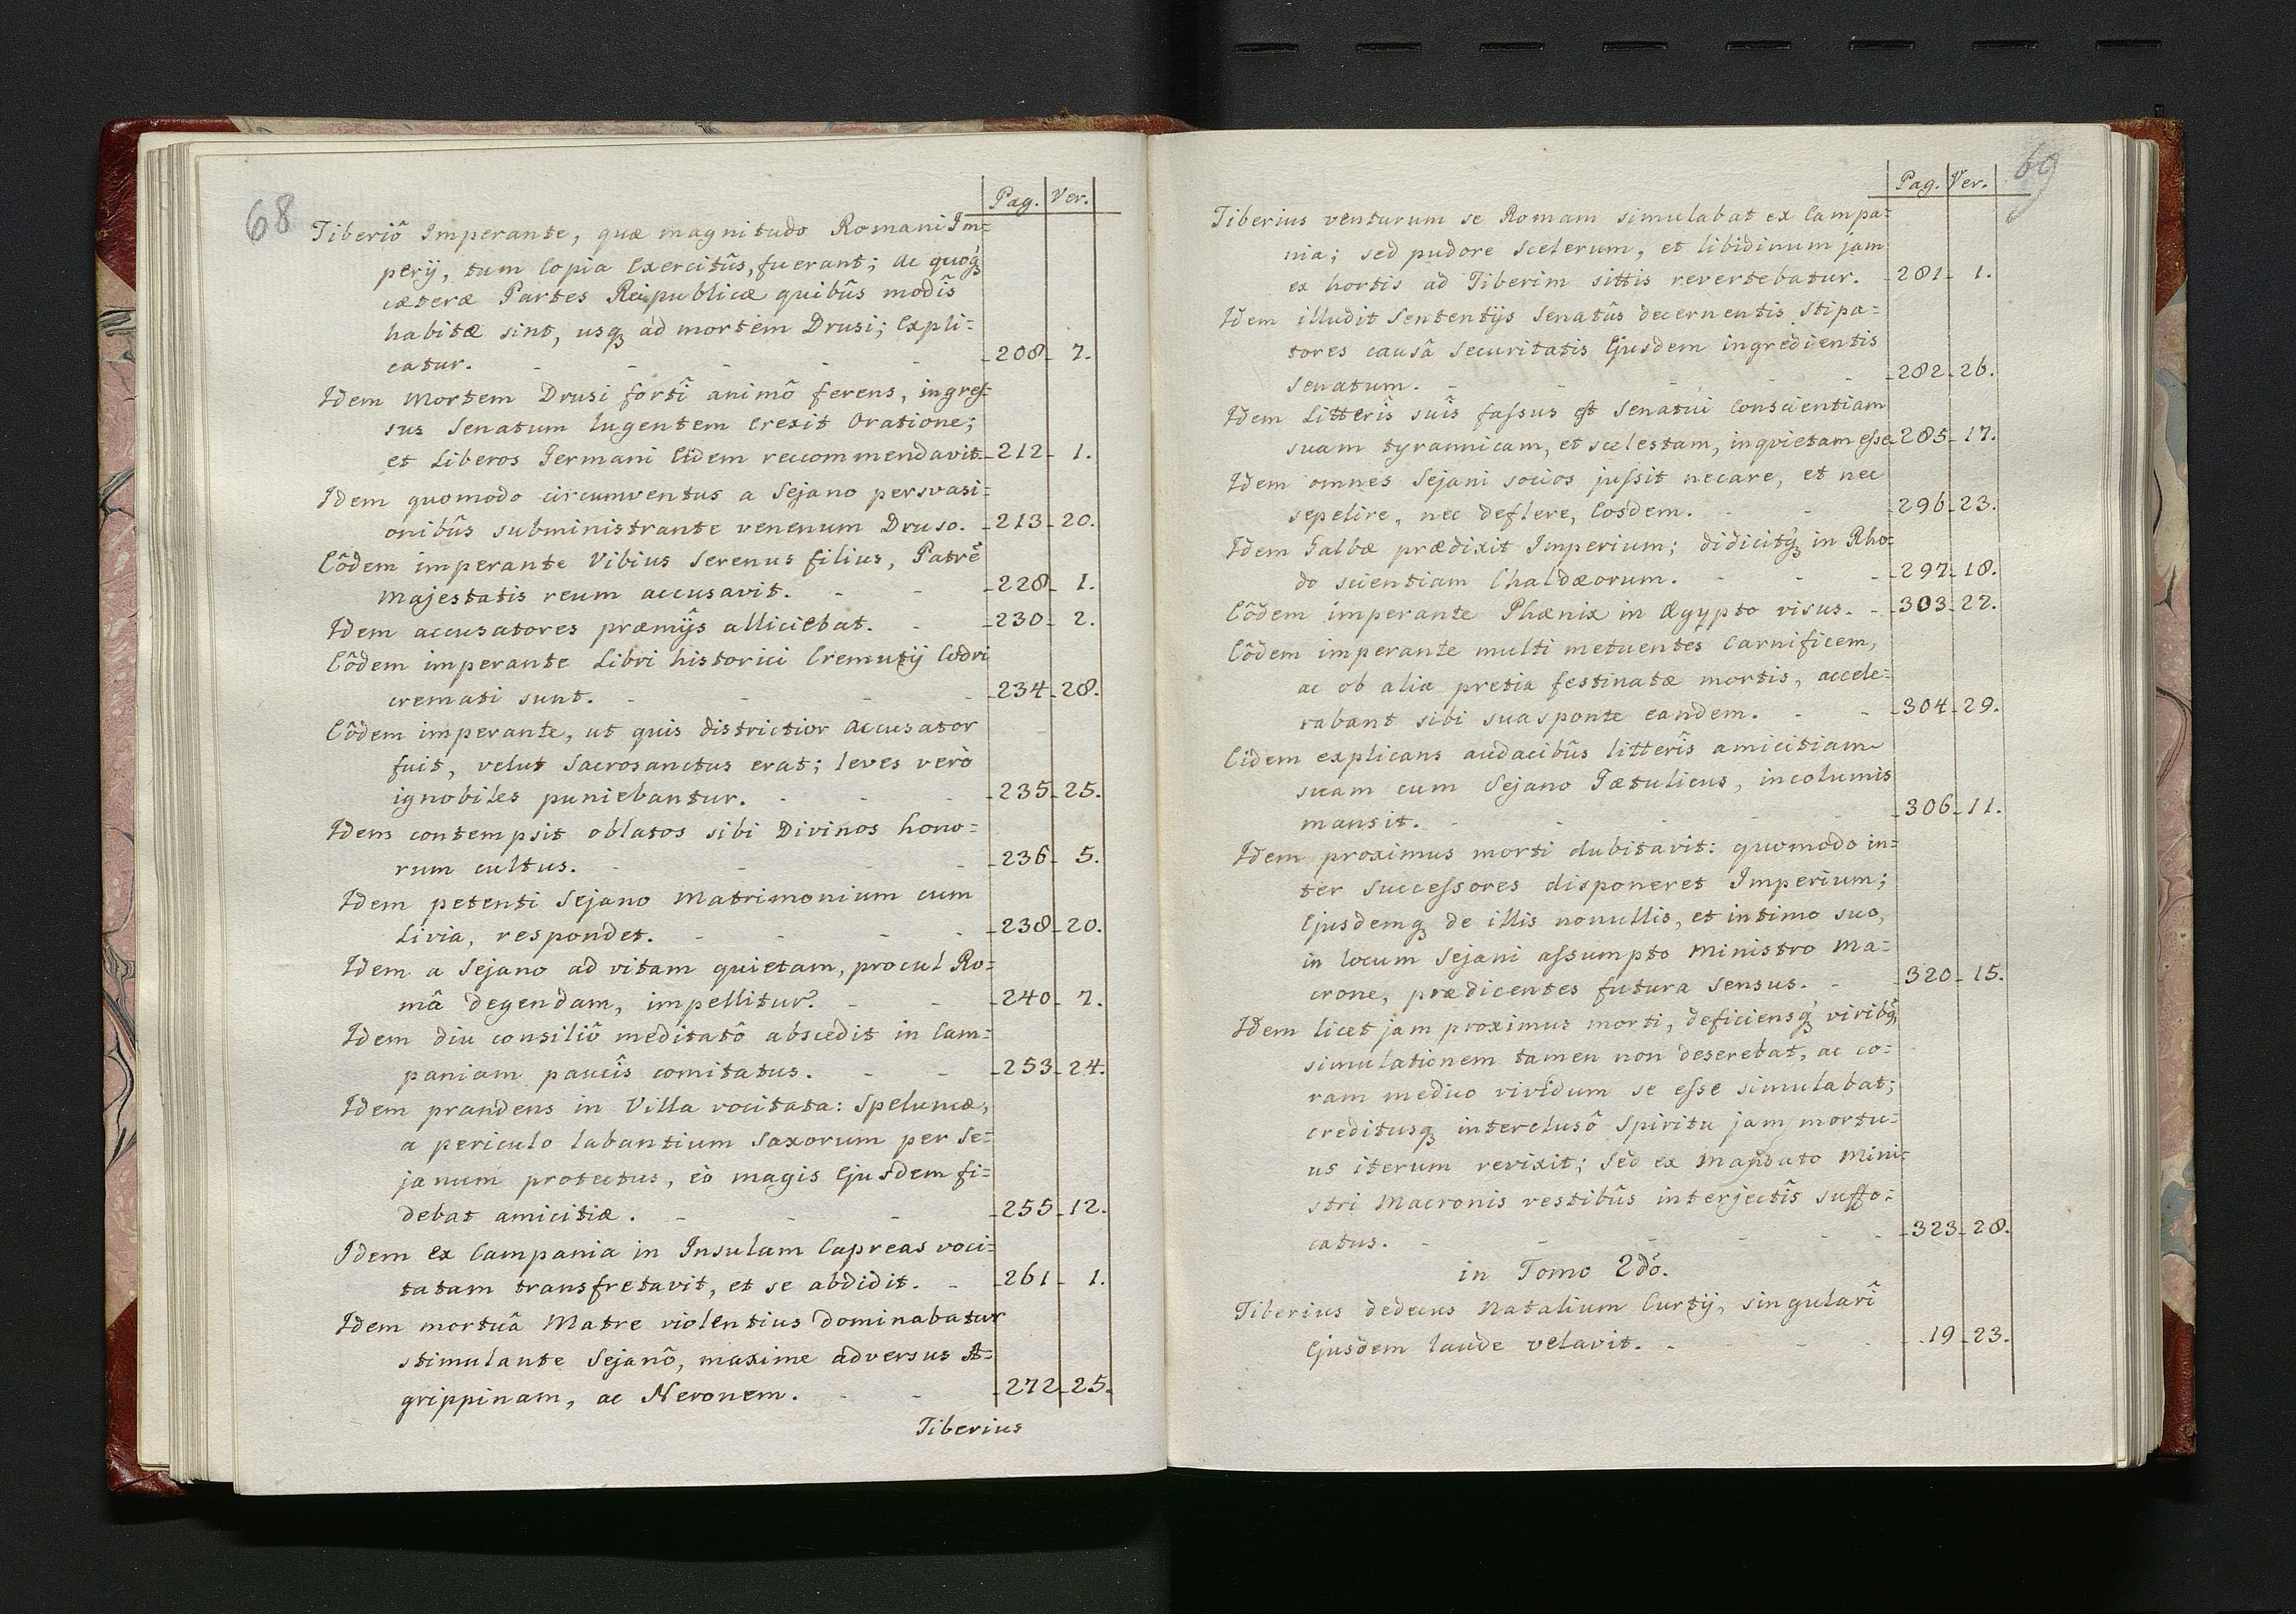 68
Pag. Ver.
Tiberiô Imperante, quæ magnitudo Romani Im=
perij, tum Copia Exercitûs, fuerant; ac quoq́
cæteræ Partes Reipublicæ quibûs modîs
habitæ sint, usq ad mortem Drusi; Expli=
catur. - - - - - 208 - 7.
Idem Mortem Drusi fortî animô ferens, ingres=
sus Senatum lugentem Erexit Oratione;
et Liberos Germani Eidem reccommendavit. - 212 - 1.
Idem quomodo circumventus a Sejano persvasi=
onibûs subministrante venenum Druso. - 213 - 20.
Eôdem imperante Vibius Serenus filius, Patrẽ
Majestatis reum accusavit. - - - 228 - 1.
Idem accusatores præmijs alliciebat. - - 230 - 2.
Eôdem imperante Libri historici Cremutij Codri
cremati sunt. - - - - 234 - 28.
Eôdem imperante, ut quis districtior Accusator
fuit, velut Sacrosanctus erat; leves verò
ignobiles puniebantur. - - - 235 - 25.
Idem contempsit oblatos sibi Divinos hono=
rum cultus. - - - - 236 - 5.
Idem petenti Sejano Matrimonium cum
Livia, respondet. - - - - 238 - 20.
Idem a Sejano ad vitam quietam, procul Ro=
mâ degendam, impellitur. - - 240 - 7.
Idem diu consiliô meditatô abscedit in Cam=
paniam paucîs comitatus. - - 253 - 24.
Idem prandens in Villa vocitata: Speluncæ,
a periculo labantium Saxorum per Se=
janum protectus, eò magis Ejusdem fi=
debat amicitiæ. - - - - 255 - 12.
Idem Ex Campania in Insulam Capreas voci=
tatam transfretavit, et se abdidit. - - 261 - 1.
Idem mortuâ Matre violentius dominabatur
stimulante Sejanô, maxime adversus A=
grippinam, ac Neronem. - - - 272 - 25.
Tiberius
69
Pag. Ver.
Tiberius venturum se Romam simulabat ex Campa=
nia; sed pudore Scelerum, et libidinum jam
ex hortis ad Tiberim sittis revertebatur. - 281 - 1.
Idem illudit Sententijs Senatûs decernentis Stipa=
tores causâ Securitatis Ejusdem ingredientis
Senatum. - - - - - 282 - 26.
Idem Litterîs suîs fassus est Senatui Conscientiam
suam tyrannicam, et scelestam, inqvietam esse - 285 - 17.
Idem omnes Sejani socios jussit necare, et nec
sepelire, nec deflere, Eosdem. - - 296 - 23.
Idem Galbæ prædixit Imperium; didicitq́ in Rho=
do scientiam Chaldæorum. - - - 297 - 18.
Eôdem imperante Phænix in Ægypto visus. - - 303 - 22.
Eôdem imperante multi metuentes Carnificem,
ac ob alia pretia festinatæ mortis, accele=
rabant sibi suasponte eandem. - - 304 - 29.
Eidem explicans audacibûs litterîs amicitiam
suam cum Sejano Gætulicus, incolumis
mansit. - - - - - 306 - 11.
Idem proximus morti dubitavit: quomodo in=
ter Successores disponeret Imperium;
Ejusdemq de illis nonullis, et intimo suo,
in locum Sejani assumpto Ministro Ma=
crone, prædicentes futura Sensus. - - 320 - 15.
Idem licet jam proximus morti, deficiensq́ viribq́,
simulationem tamen non deserebat, ac co=
ram medico vividum se esse simulabat;
creditusq interclusô Spiritu jam mortu=
us iterum revixit; Sed ex Mandato Mini=
stri Macronis vestibûs interjectîs suffo=
catus. - - - - - 323 - 28.
in Tomo 2dô.
Tiberius dedecus Natalium Curtij, singularî
Ejusdem laude velavit. - - - 19 - 23.